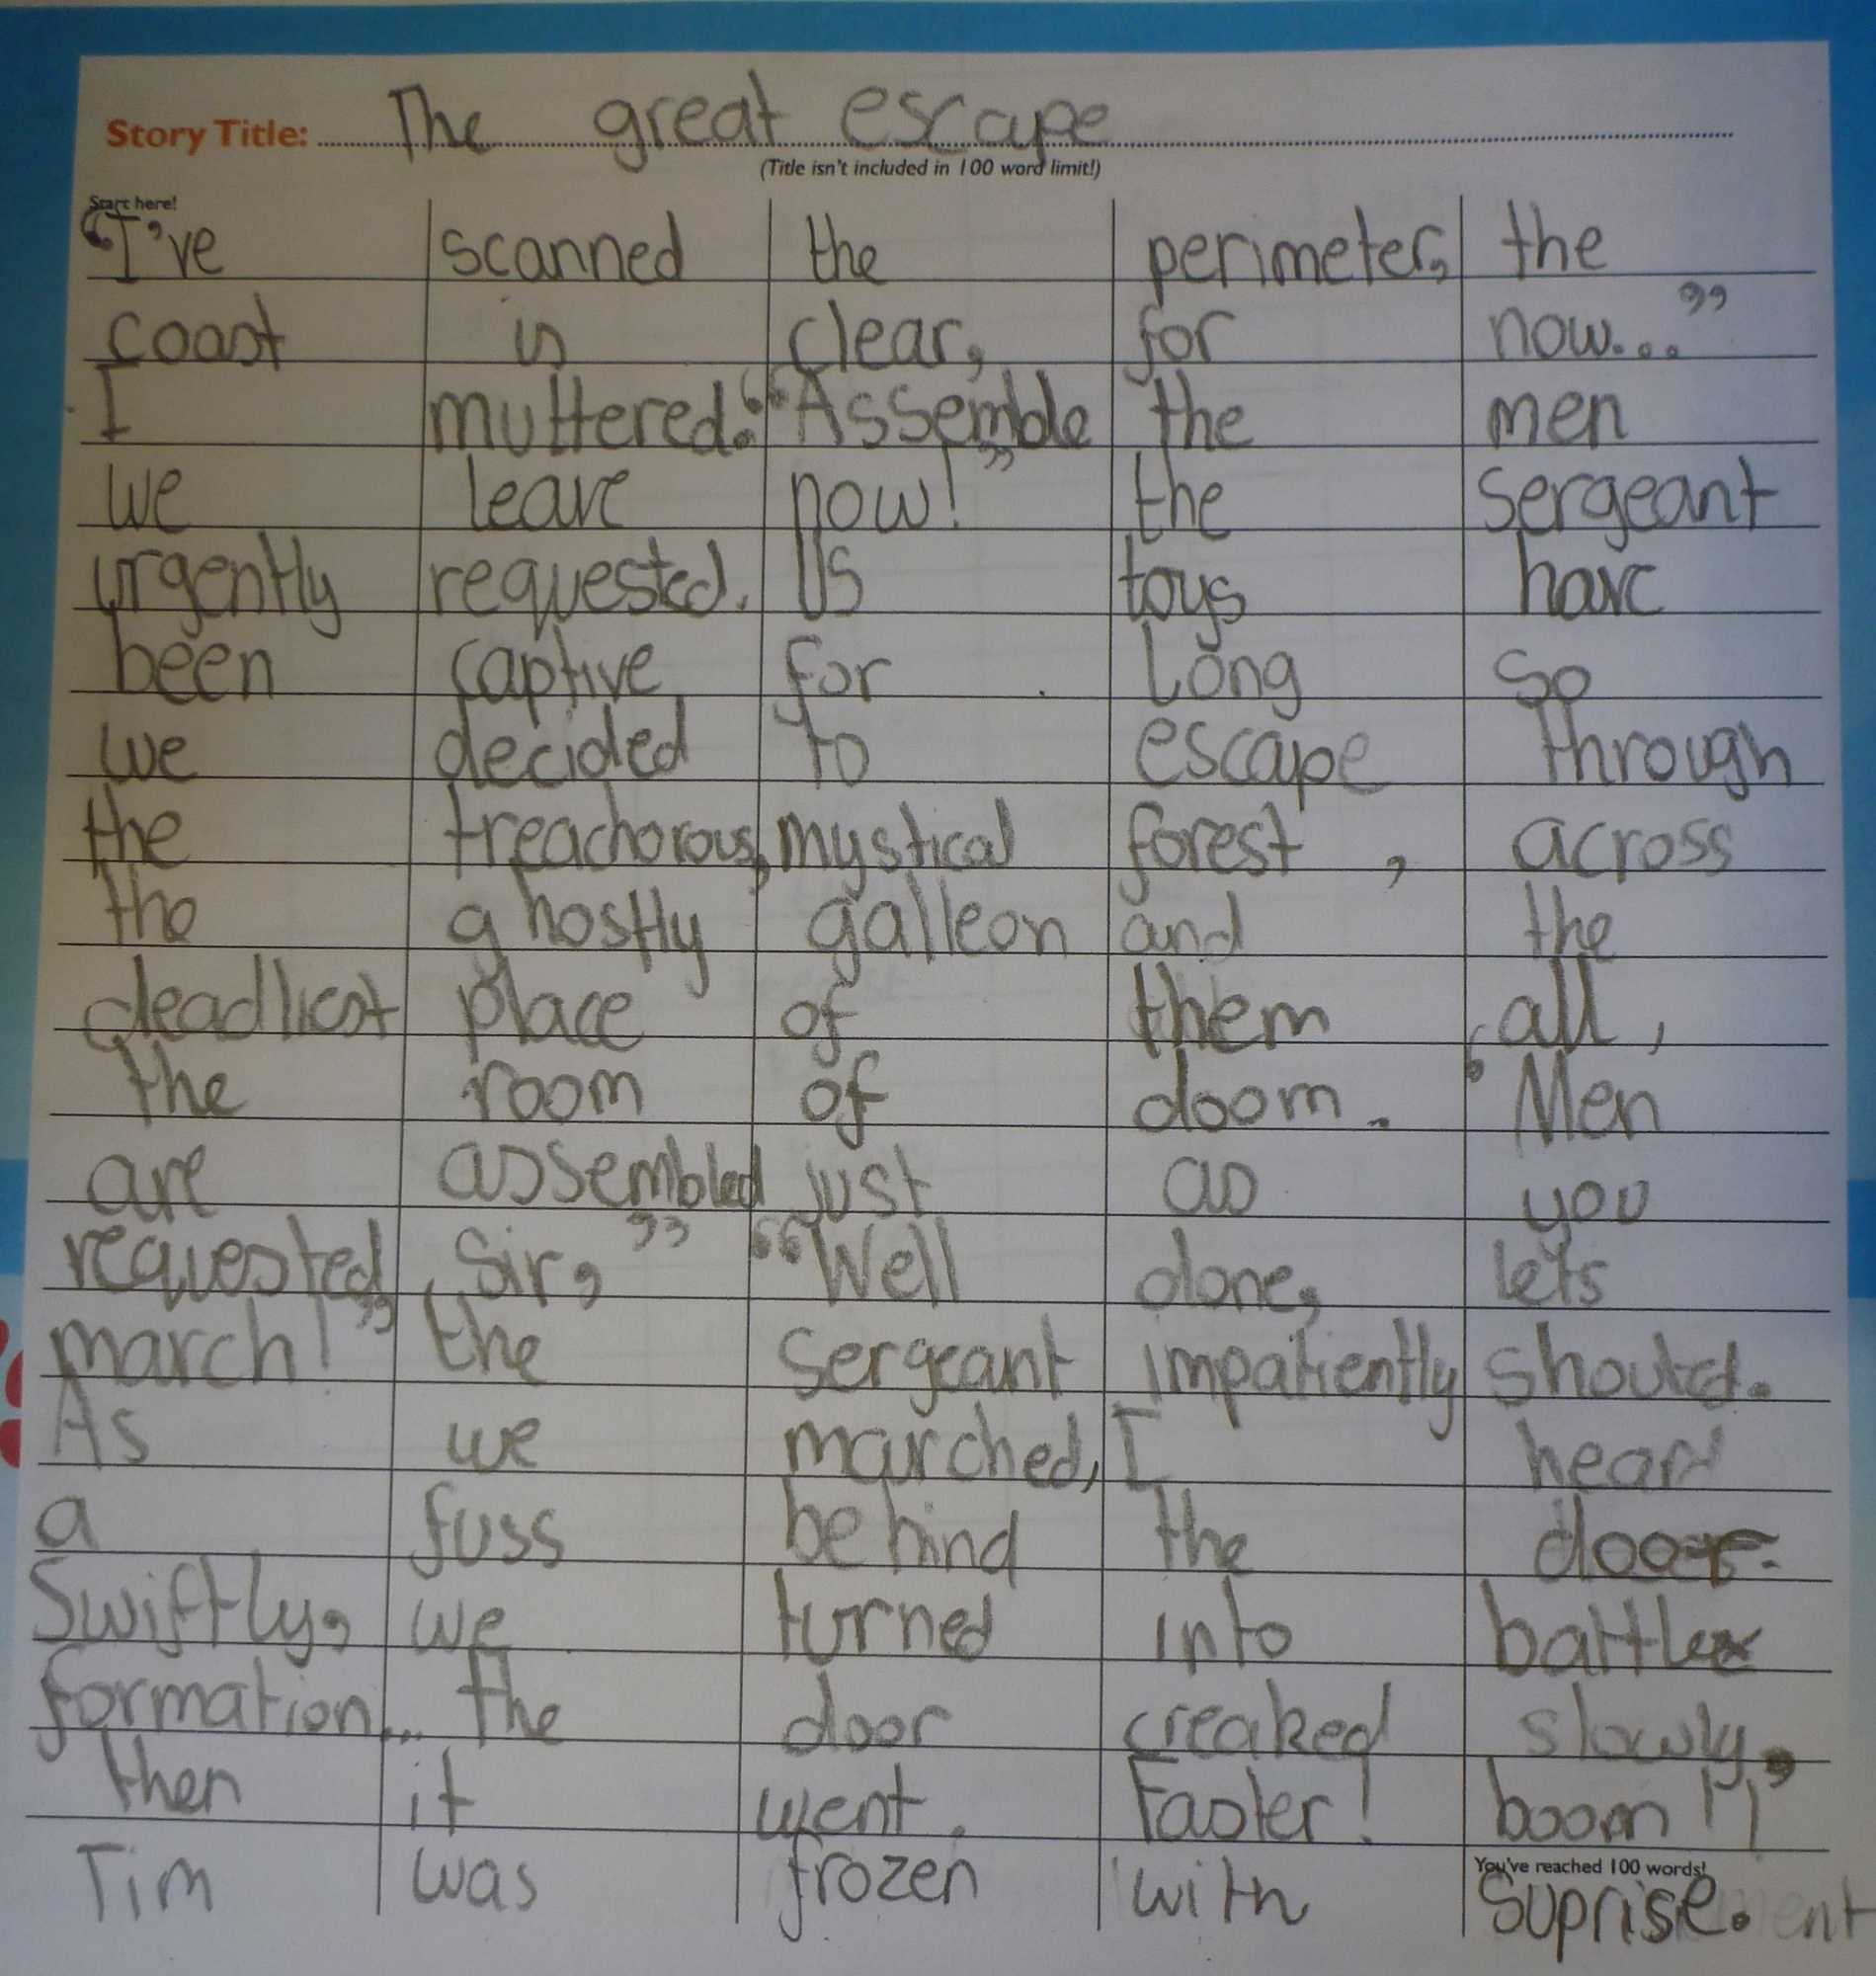 Story Title: The great escape
(Title isn't included in 100 word limit!)
Start here!
“I've scanned the perimeter, the
coast is clear, for now...”
I muttered. “Assemble the men
we leave now!” the sergeant
urgently requested. Us toys have
been captive for long so
we decided to escape through
the treachorous, mystical forest, across
the ghostly galleon and the
deadliest place of them all,
the room of doom. ‘Men
are assembled just as you
requested, Sir,” “Well done, lets
march!” the sergeant impatiently shouted.
As we marched, I heard
a fuss behind the door.
Swiftly, we turned into battle
formation... the door creaked slowly,
then it went. Faster! boom!!
You've reached 100 words!
Tim was frozen with Suprise.